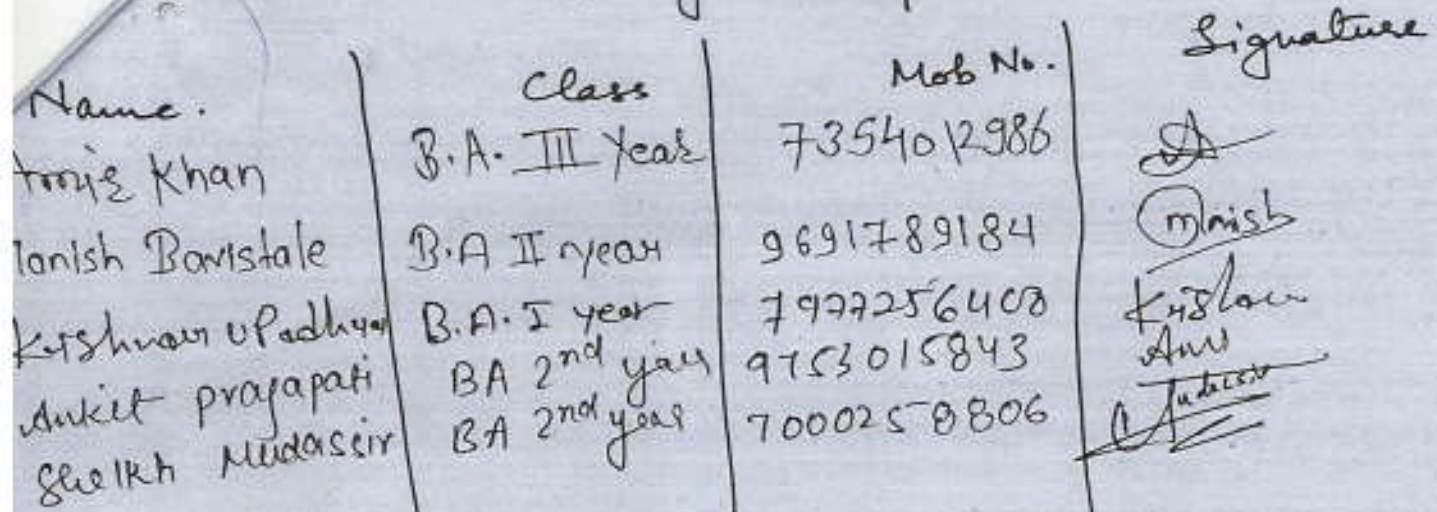 Name. Class Mob No. Signature
Khan B.A. III Year 7354012986
anish Baristale B.A II year 9691789184 Manish
Krishnan Upadhyay B.A. I year 7972256408 Krishna
Ankit prajapati BA 2nd year 9753015843
Sheikh Mudassir BA 2nd year 7000258806 Mudassir